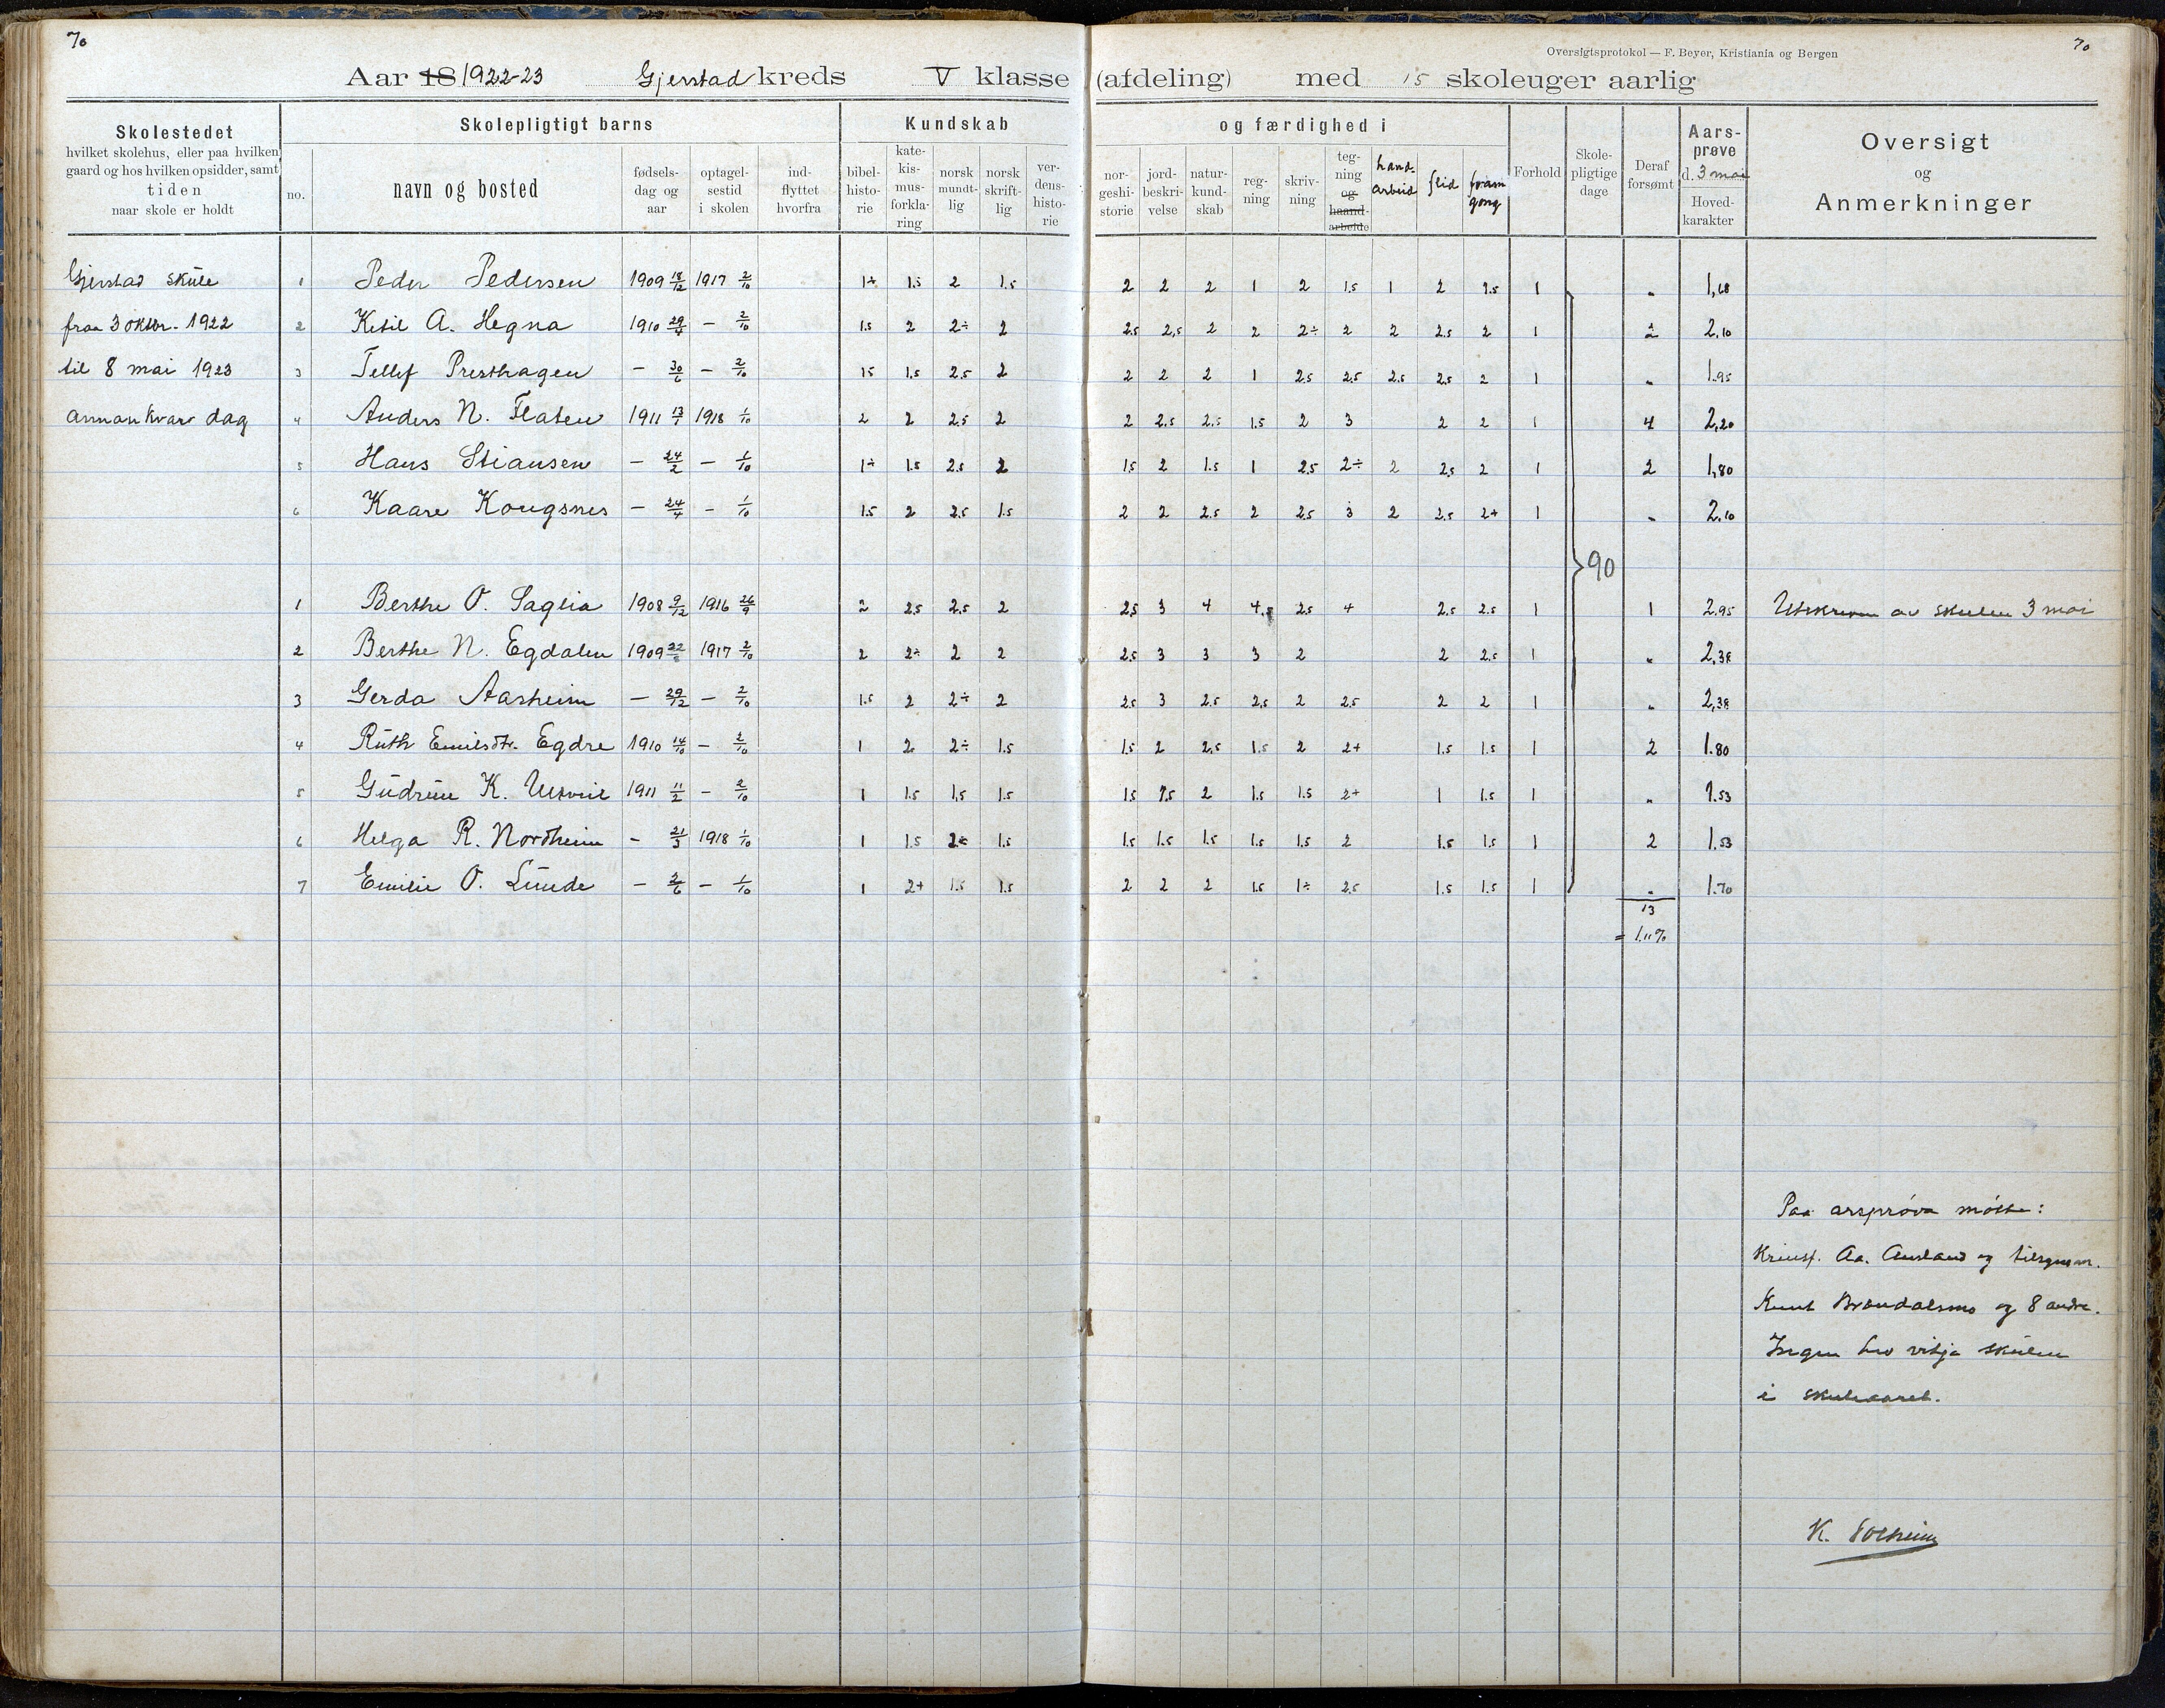 70
70
Oversigtsprotokol — F. Beyer, Kristiania og Bergen
Aar 18 1922-23 Gjerstad kreds V klasse (afdeling) med 15 skoleuger aarlig
Skolestedet
hvilket skolehus, eller paa hvilken
gaard og hos hvilken opsidder, samt
tiden
naar skole er holdt
Skolepligtigt barns
no.
navn og bosted
fødsels-
dag og
aar
optagel-
sestid
i skolen
ind-
flyttet
hvorfra
Kundskab
bibel-
histo-
rie
kate-
kis-
mus-
forkla-
ring
norsk
mundt-
lig
norsk
skrift-
lig
ver-
dens-
histo-
rie
og færdighed i
nor-
geshi-
storie
jord-
beskri-
velse
natur-
kund-
skab
reg-
ning
skriv-
ning
teg-
ning
og
haand-
arbeide
hand-
arbeid
flid
fram
gong
Forhold
Skole-
pligtige
dage
Deraf
forsømt
Aars-
prøve
d. 3 mai
Hoved-
karakter
Oversigt
og
Anmerkninger
Gjerstad skule 1 Peder Pedersen 1909 18/12 1917 2/10 1÷ 1.5 2 1.5 2 2 2 1 2 1.5 1 2 1.5 1 " 1,68
fraa 3 oktbr. 1922 2 Ketil A. Hegna 1910 29/4 — 2/10 1.5 2 2÷ 2 2.5 2,5 2 2 2÷ 2 2 2.5 2 1 2 2,10
til 8 mai 1923 3 Tellef Presthagen — 30/6 — 2/10 1.5 1.5 2.5 2 2 2 2 1 2.5 2.5 2.5 2.5 2 1 " 1.95
annankvar dag 4 Anders N. Flaten 1911 13/1 1918 1/10 2 2 2.5 2 2 2.5 2.5 1.5 2 3 2 2 1 4 2,20
5 Hans Stiansen — 24/2 — 1/10 1÷ 1.5 2.5 2 1.5 2 1.5 1 2.5 2÷ 2 2.5 2 1 2 1,80
6 Kaare Kongsnes — 24/4 — 1/10 1.5 2 2.5 1.5 2 2 2.5 2 2.5 3 2 2.5 2+ 1 " 2.10
90
1 Berthe O. Saglia 1908 9/12 1916 26/9 2 2.5 2.5 2 2.5 3 4 4.5 2.5 4 2.5 2.5 1 1 2.95 Utskreven av skulen 3 mai
2 Berthe N. Egdalen 1909 1917 2/10 2 2÷ 2 2 2.5 3 3 3 2 2 2.5 1 " 2,38
3 Gerda Aasheim — 29/12 — 2/10 1.5 2 2÷ 2 2.5 3 2.5 2.5 2 2.5 2 2 1 " 2,38
4 Ruth Emilsdtr. Egdre 1910 14/10 — 2/10 1 2 2÷ 1.5 1.5 2 2.5 1.5 2 2+ 1.5 1.5 1 2 1.80
5 Gudrun K. 1911 11/2 — 2/10 1 1.5 1,5 1.5 1.5 1.5 2 1.5 1.5 2+ 1 1.5 1 " 1.53
6 Helga R. Nordheim — 21/3 1918 1/10 1 1.5 2÷ 1.5 1.5 1.5 1.5 1.5 1.5 2 1.5 1.5 1 2 1.53
7 Emilie O. Lunde — 2/6 — 1/10 1 2+ 1.5 1.5 2 2 2 1.5 1÷ 2.5 1.5 1.5 1 " 1.70
13
= 1.11%
Paa arsprøva møtte:
Aa. Ausland og tilsynsm.
Knut Brændalsmo og 8 andre.
Ingen hev vitja skulen
i skuleaaret.
K. Solheim